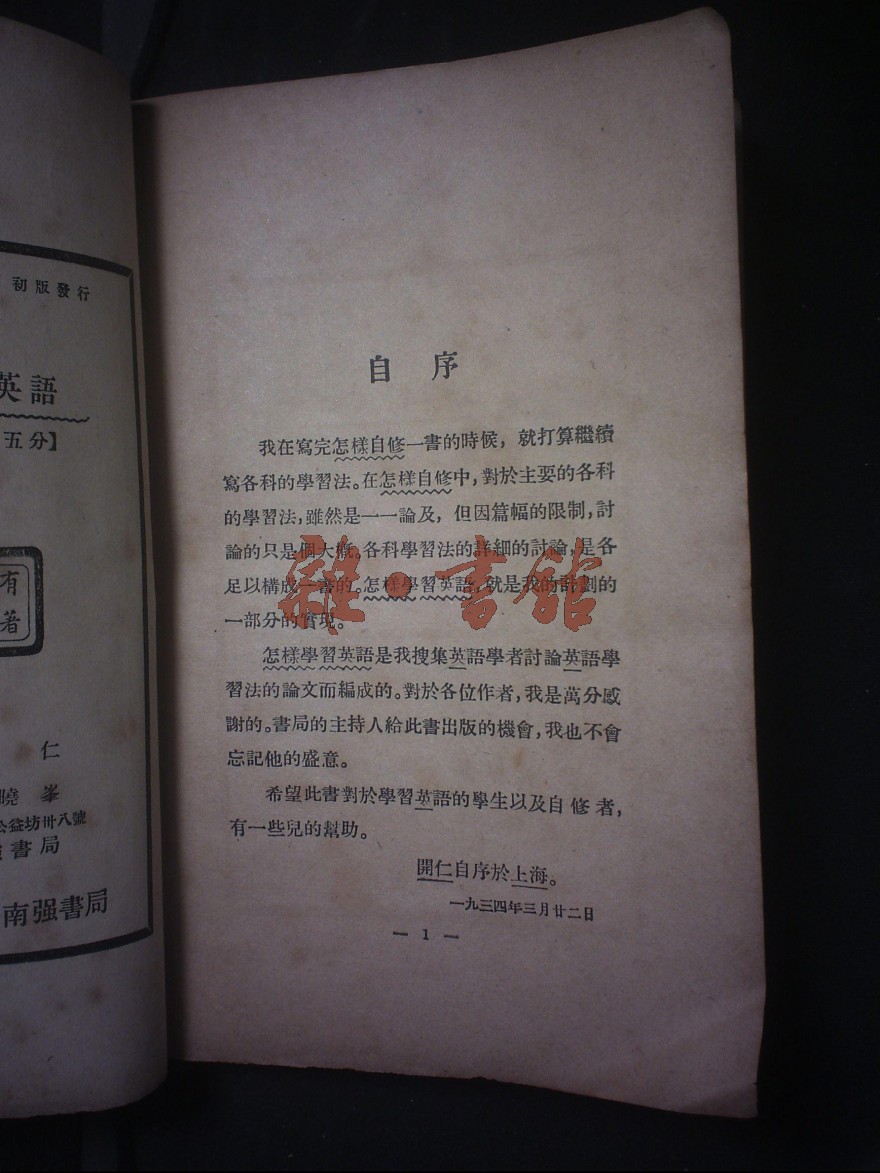 初版發行
英語
五分】
有
著
仁
曉峯
公益坊卅八號
書局
南强書局
自序
我在寫完怎樣自修一書的時候，就打算繼續
寫各科的學習法。在怎樣自修中，對於主要的各科
的學習法，雖然是一一論及，但因篇幅的限制，討
論的只是個大概。各科學習法的詳細的討論，是各
足以構成一書的。怎樣學習英語，就是我的計劃的
一部分的實現。
怎樣學習英語是我搜集英語學者討論英語學
習法的論文而編成的。對於各位作者，我是萬分感
謝的。書局的主持人給此書出版的機會，我也不會
忘記他的盛意。
希望此書對於學習英語的學生以及自修者，
有一些兒的幫助。
開仁自序於上海。
一九三四年三月廿二日
— 1 —
雜·書館